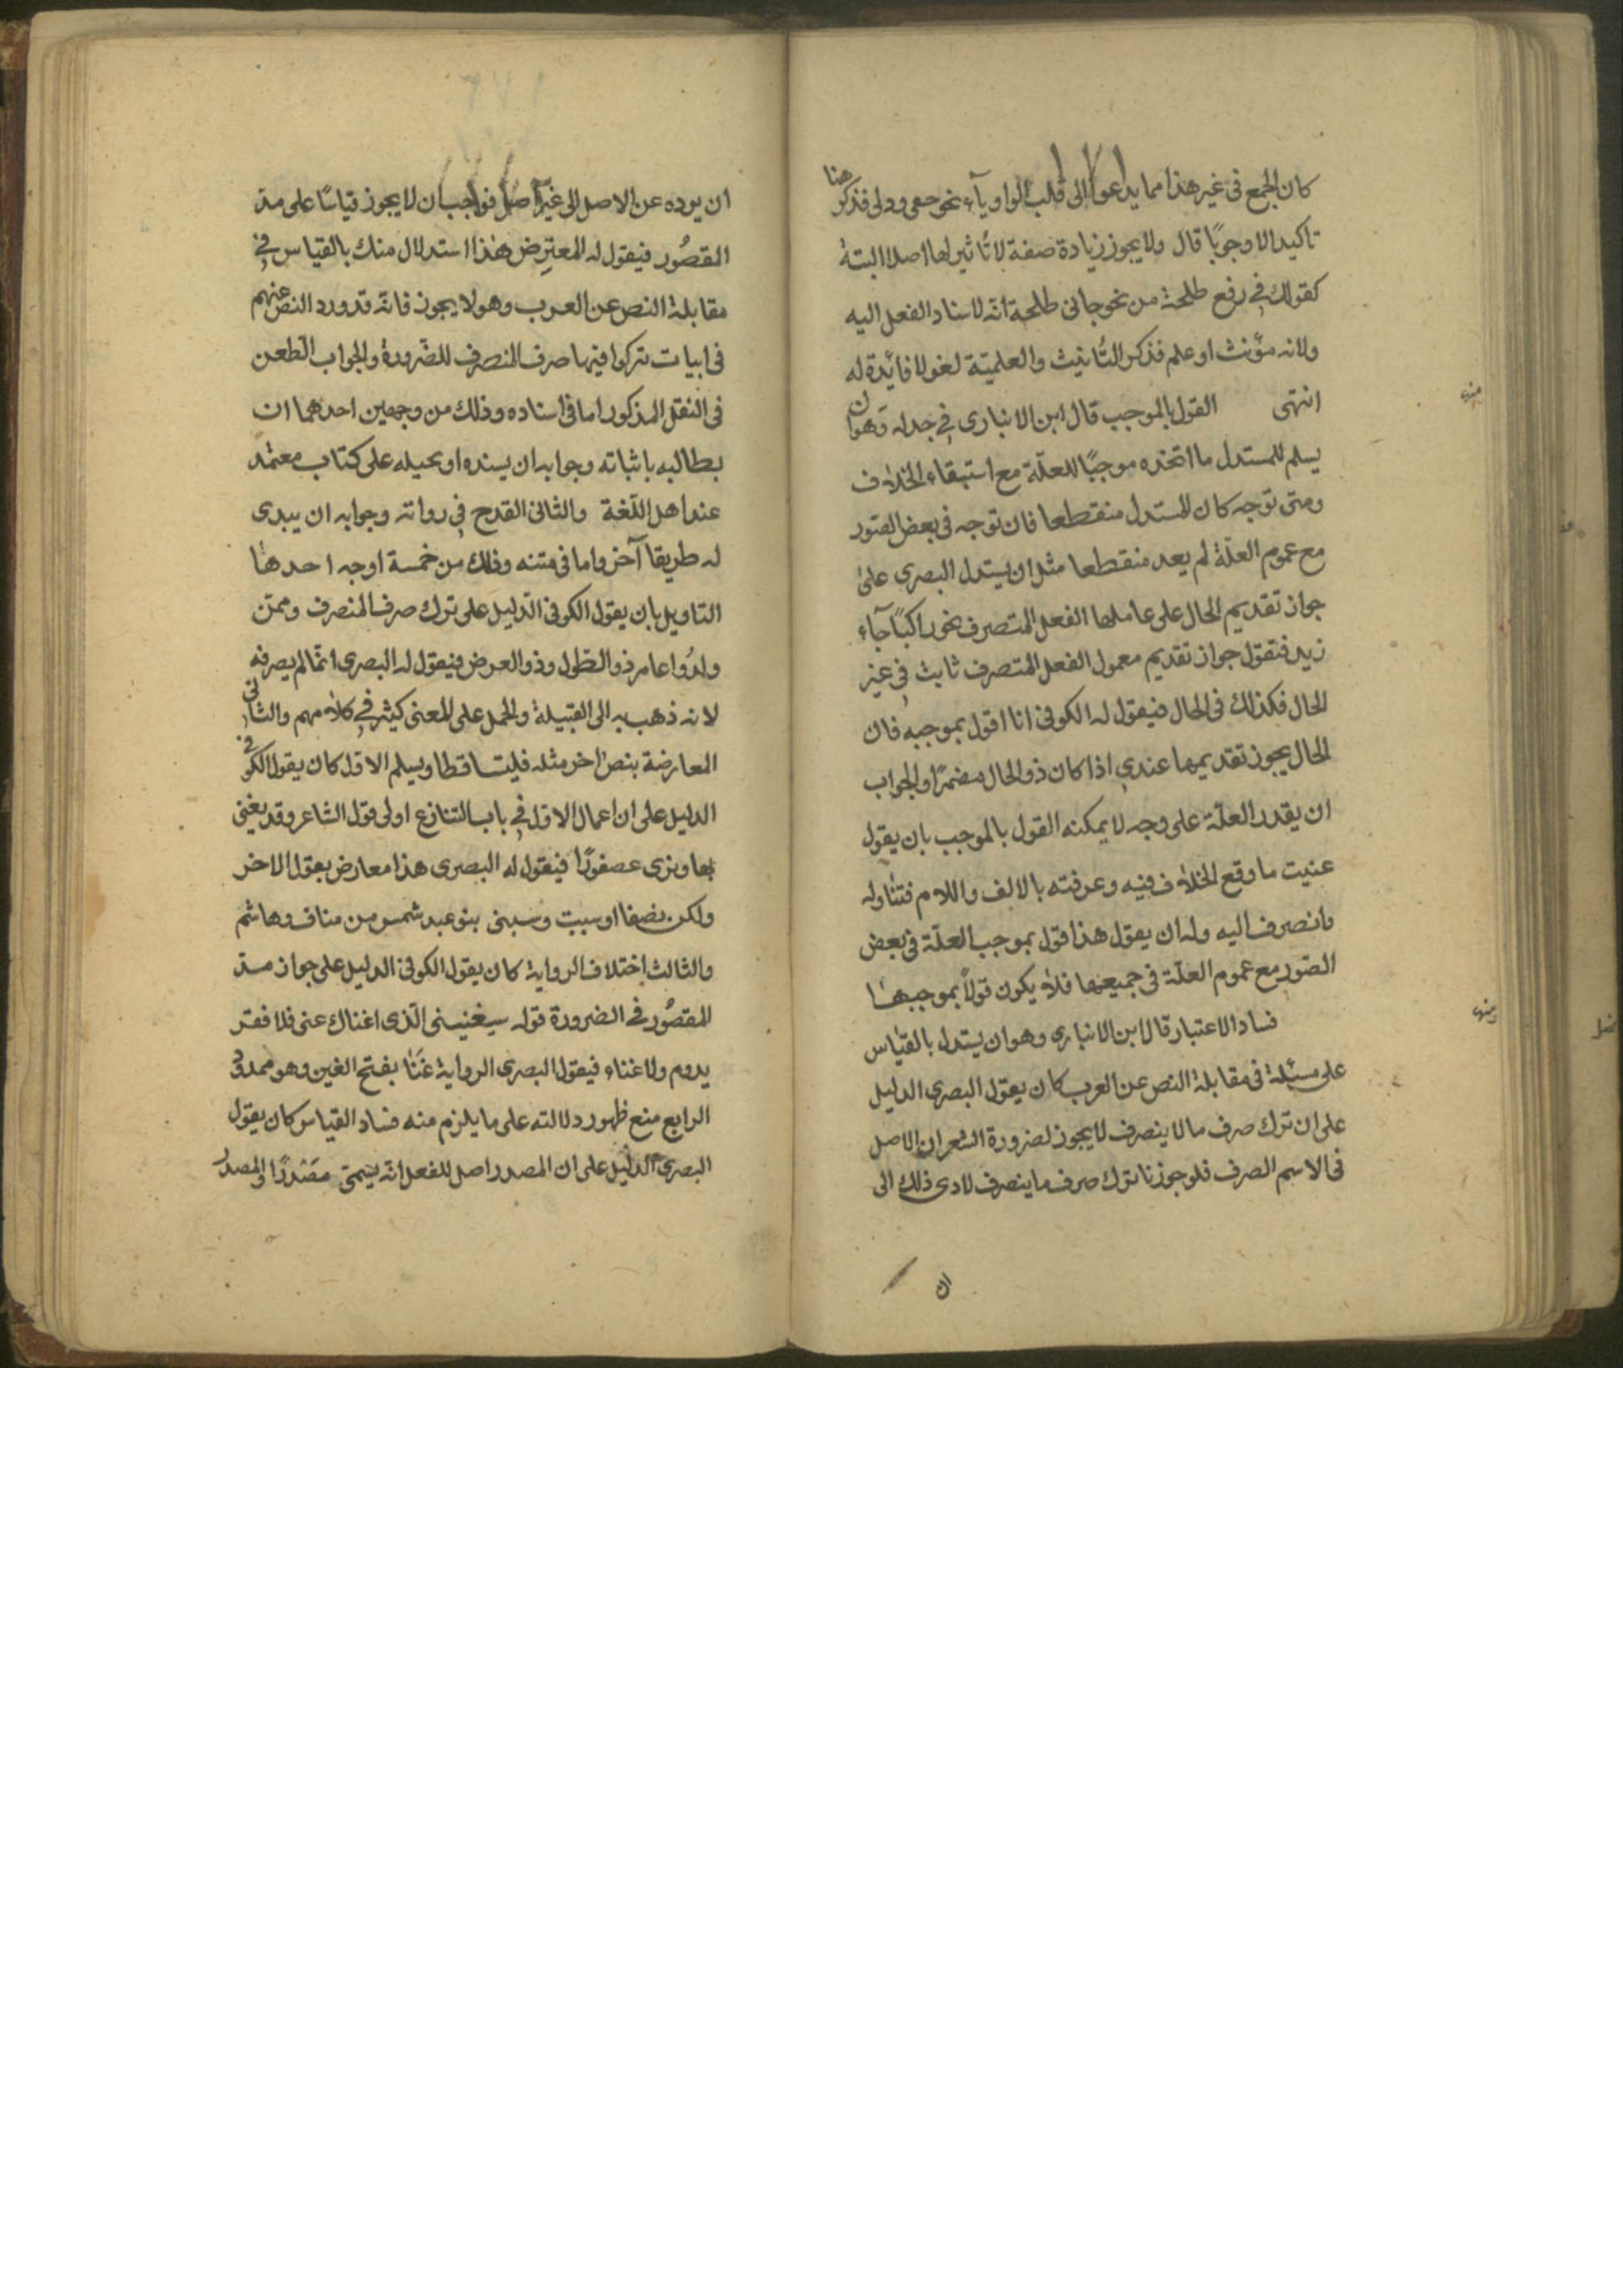 كان الجمع في غير هذا مما يداعوا الى قلب الواو يآء نحو حعى ودلى فذكر هنا
تاكيد الا وجوبًا قال ولا يجوز زيادة صفة لا تأثير لها اصلا البتة
كقولك في رفع طلحة من نحو جانى طلحة انه لاسناد الفعل اليه
ولانه مؤنث او علم فذكر التأنيث والعلميّة لغو لا فائدة له
انتهى القول بالموجب قال ابن الانبارى في جدله وهو ان
يسلم للمستدل ما اتخذه موجبًا للعلّة مع استبقاء الخلاف
ومتى توجه كان المستدل منقطعا فان توجه في بعض الصّور
مع عموم العلّة لم يعد منقطعا مثل ان يستدل البصرى على
جواز تقديم الحال على عاملها الفعل المتصرف نحو راكبًا جآء
زيد فتقول جواز تقديم معمول الفعل المتصرف ثابت في غير
الحال فكذلك في الحال فيقول له الكوفى انا اقول بموجبه فان
الحال يجوز تقديمها عندي اذا كان ذو الحال مضمرًا والجواب
ان يقدر العلّة على وجه لا يمكنه القول بالموجب بان يقول
عنيت ما وقع الخلاف فيه وعرفته بالالف واللام فتناوله
وانصرف اليه وله ان يقول هذا قول بموجب العلّة في بعض
الصّور مع عموم العلّة في جميعها فلا يكون قولًا بموجبها
فساد الاعتبار قال ابن الانبارى وهو ان يستدل بالقياس
على مسئلة في مقابلة النص عن العرب كان يقول البصرى الدليل
على ان ترك صرف ما لا ينصرف لا يجوز لضرورة الشعر ان الاصل
في الاسم الصرف فلو جوزنا ترك صرف ما ينصرف لادى ذلك الى
ان
ان يرده عن الاصل الى غير اصل فواجب ان لا يجوز قياسًا على مد
المقصُور فيقول له المعترض هذا استدلال منك بالقياس في
مقابلة النص عن العرب وهو لا يجوز فانه قد ورد النص عنهم
في ابيات تركوا فيها صرف المنصرف للضّرورة والجواب الطعن
في النقل المذكور اما في اسناده وذلك من وجهين احدهما ان
يطالبه باثباته وجوابه ان يسنده او يحيله على كتاب معتمد
عند اهل اللّغة والثانى القدح في رواته وجوابه ان يبدى
له طريقا آخر واما في متنه وذلك من خمسة اوجه احدها
التاويل بان يقول الكوفى الدّليل على ترك صرف المنصرف وممّن
ولدُوا عامر ذو الطّول وذو العرض فيقول له البصرى انّما لم يصرفه
لانه ذهب به الى القبيلة والحمل على المعنى كيثر في كلامهم والثانى
المعارضة بنص اخر مثله فليتساقطا ويسلم الاوّل كان يقول الكوفى
الدليل على ان اعمال الاوّل في باب التنازع اولى قول الشاعر وقد يغنى
بها ونرى عصفورًا فيقول له البصرى هذا معارض بقول الاخر
ولكن نصفا او سببت وسبنى بنو عبد شمس من مناف وهاشم
والثالث اختلاف الرواية كان يقول الكوفى الدليل على جواز مدّ
المقصُور في الضرورة قوله سيغنينى الّذى اغناك عنى فلا فقر
يدوم ولا غناء فيقول البصرى الرواية غَنَا بفتح الغين وهو ممدود
الرابع منع ظهور دلالته على ما يلزم منه فساد القياس كان يقول
البصرى الدليل على ان المصدر اصل للفعل انّه يسمى مَصْدرًا والمصدر
منها
ومنها